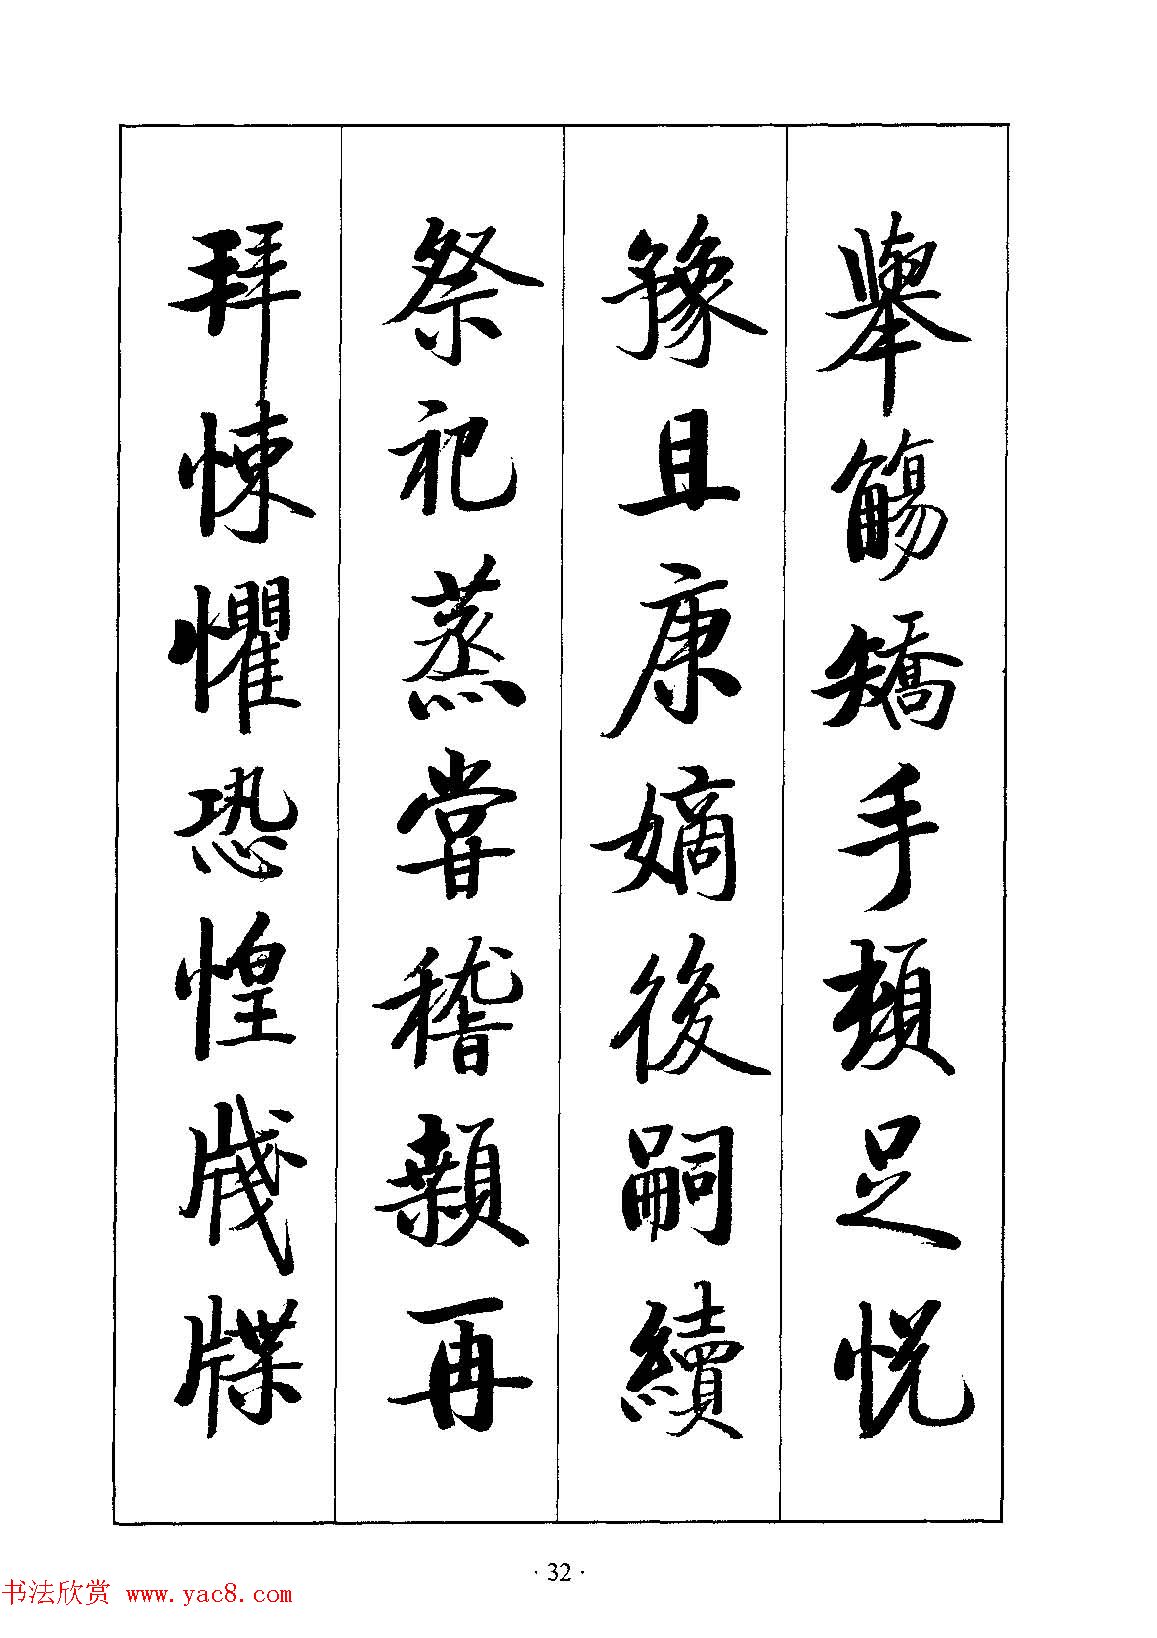 舉觴矯手頓足悦
豫且康嫡後嗣續
祭祀蒸嘗稽顙再
拜悚懼恐惶牋牒
· 32 ·
书法欣赏 www.yac8.com